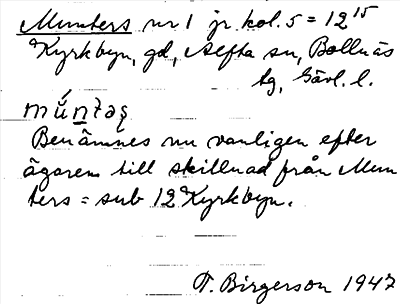 Munters nr 1 jr kol. 5 = 12¹⁵
Kyrkbyn, gd, Alfta sn, Bollnäs
tg, Gävl. l.
Benämnes nu vanligen efter
ägaren till skillnad från Mun
ters = sub 12 Kyrkbyn.
T. Birgerson 1947